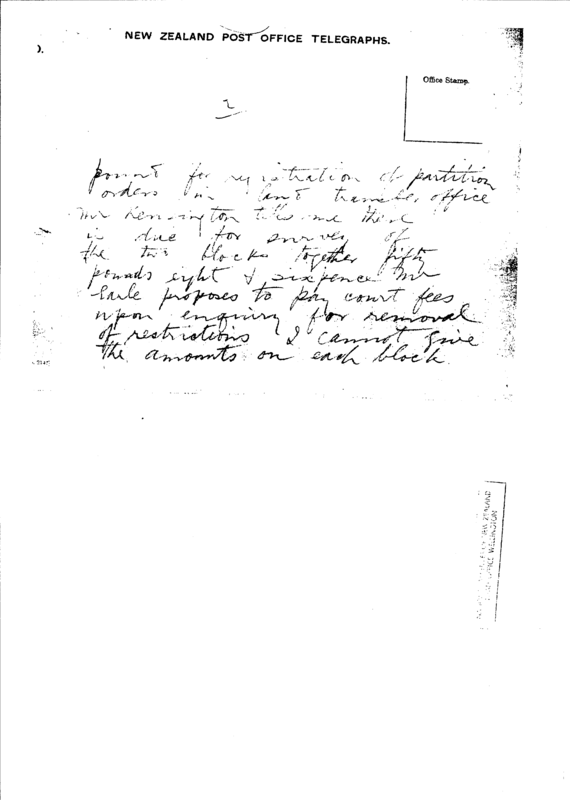 NEW ZEALAND POST OFFICE TELEGRAPHS.
).
Office Stamp.
2
pound for registration of partition
orders in land transfer office
Mr Kensington tells me there
is due for survey of
the two blocks together fifty
pounds eight & sixpence Mr
Earle proposes to pay court fees
upon enquiry for removal
of restrictions I cannot give
the amounts on each block.
NEW ZEALAND
OFFICE WELLINGTON